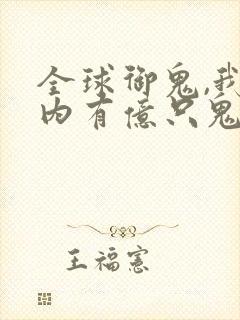 全球御鬼,我
内有億只鬼
王福憲